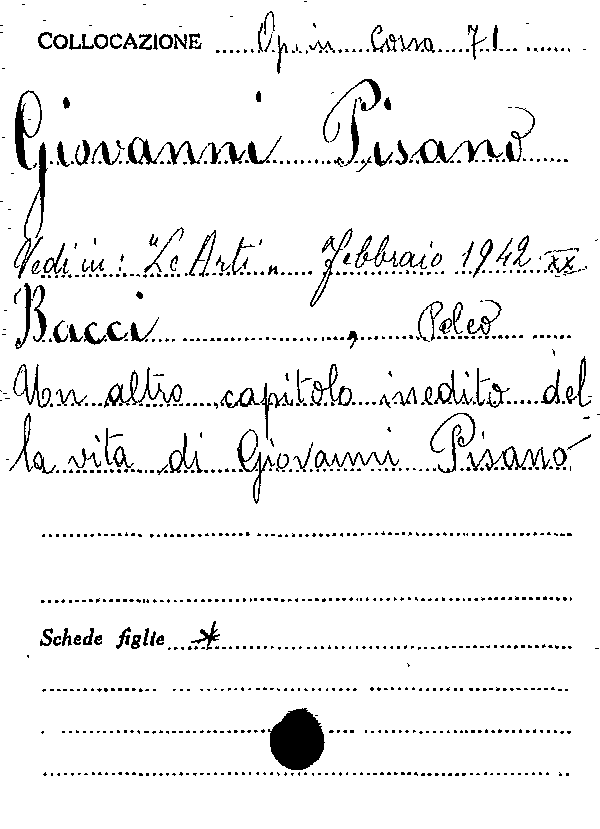 COLLOCAZIONE Op. in Corso 71
Giovanni Pisano
Vedi in: "Le Arti" Febbraio 1942 XX
Bacci, Peleo
Un altro capitolo inedito del
la vita di Giovanni Pisano
Schede figlie *